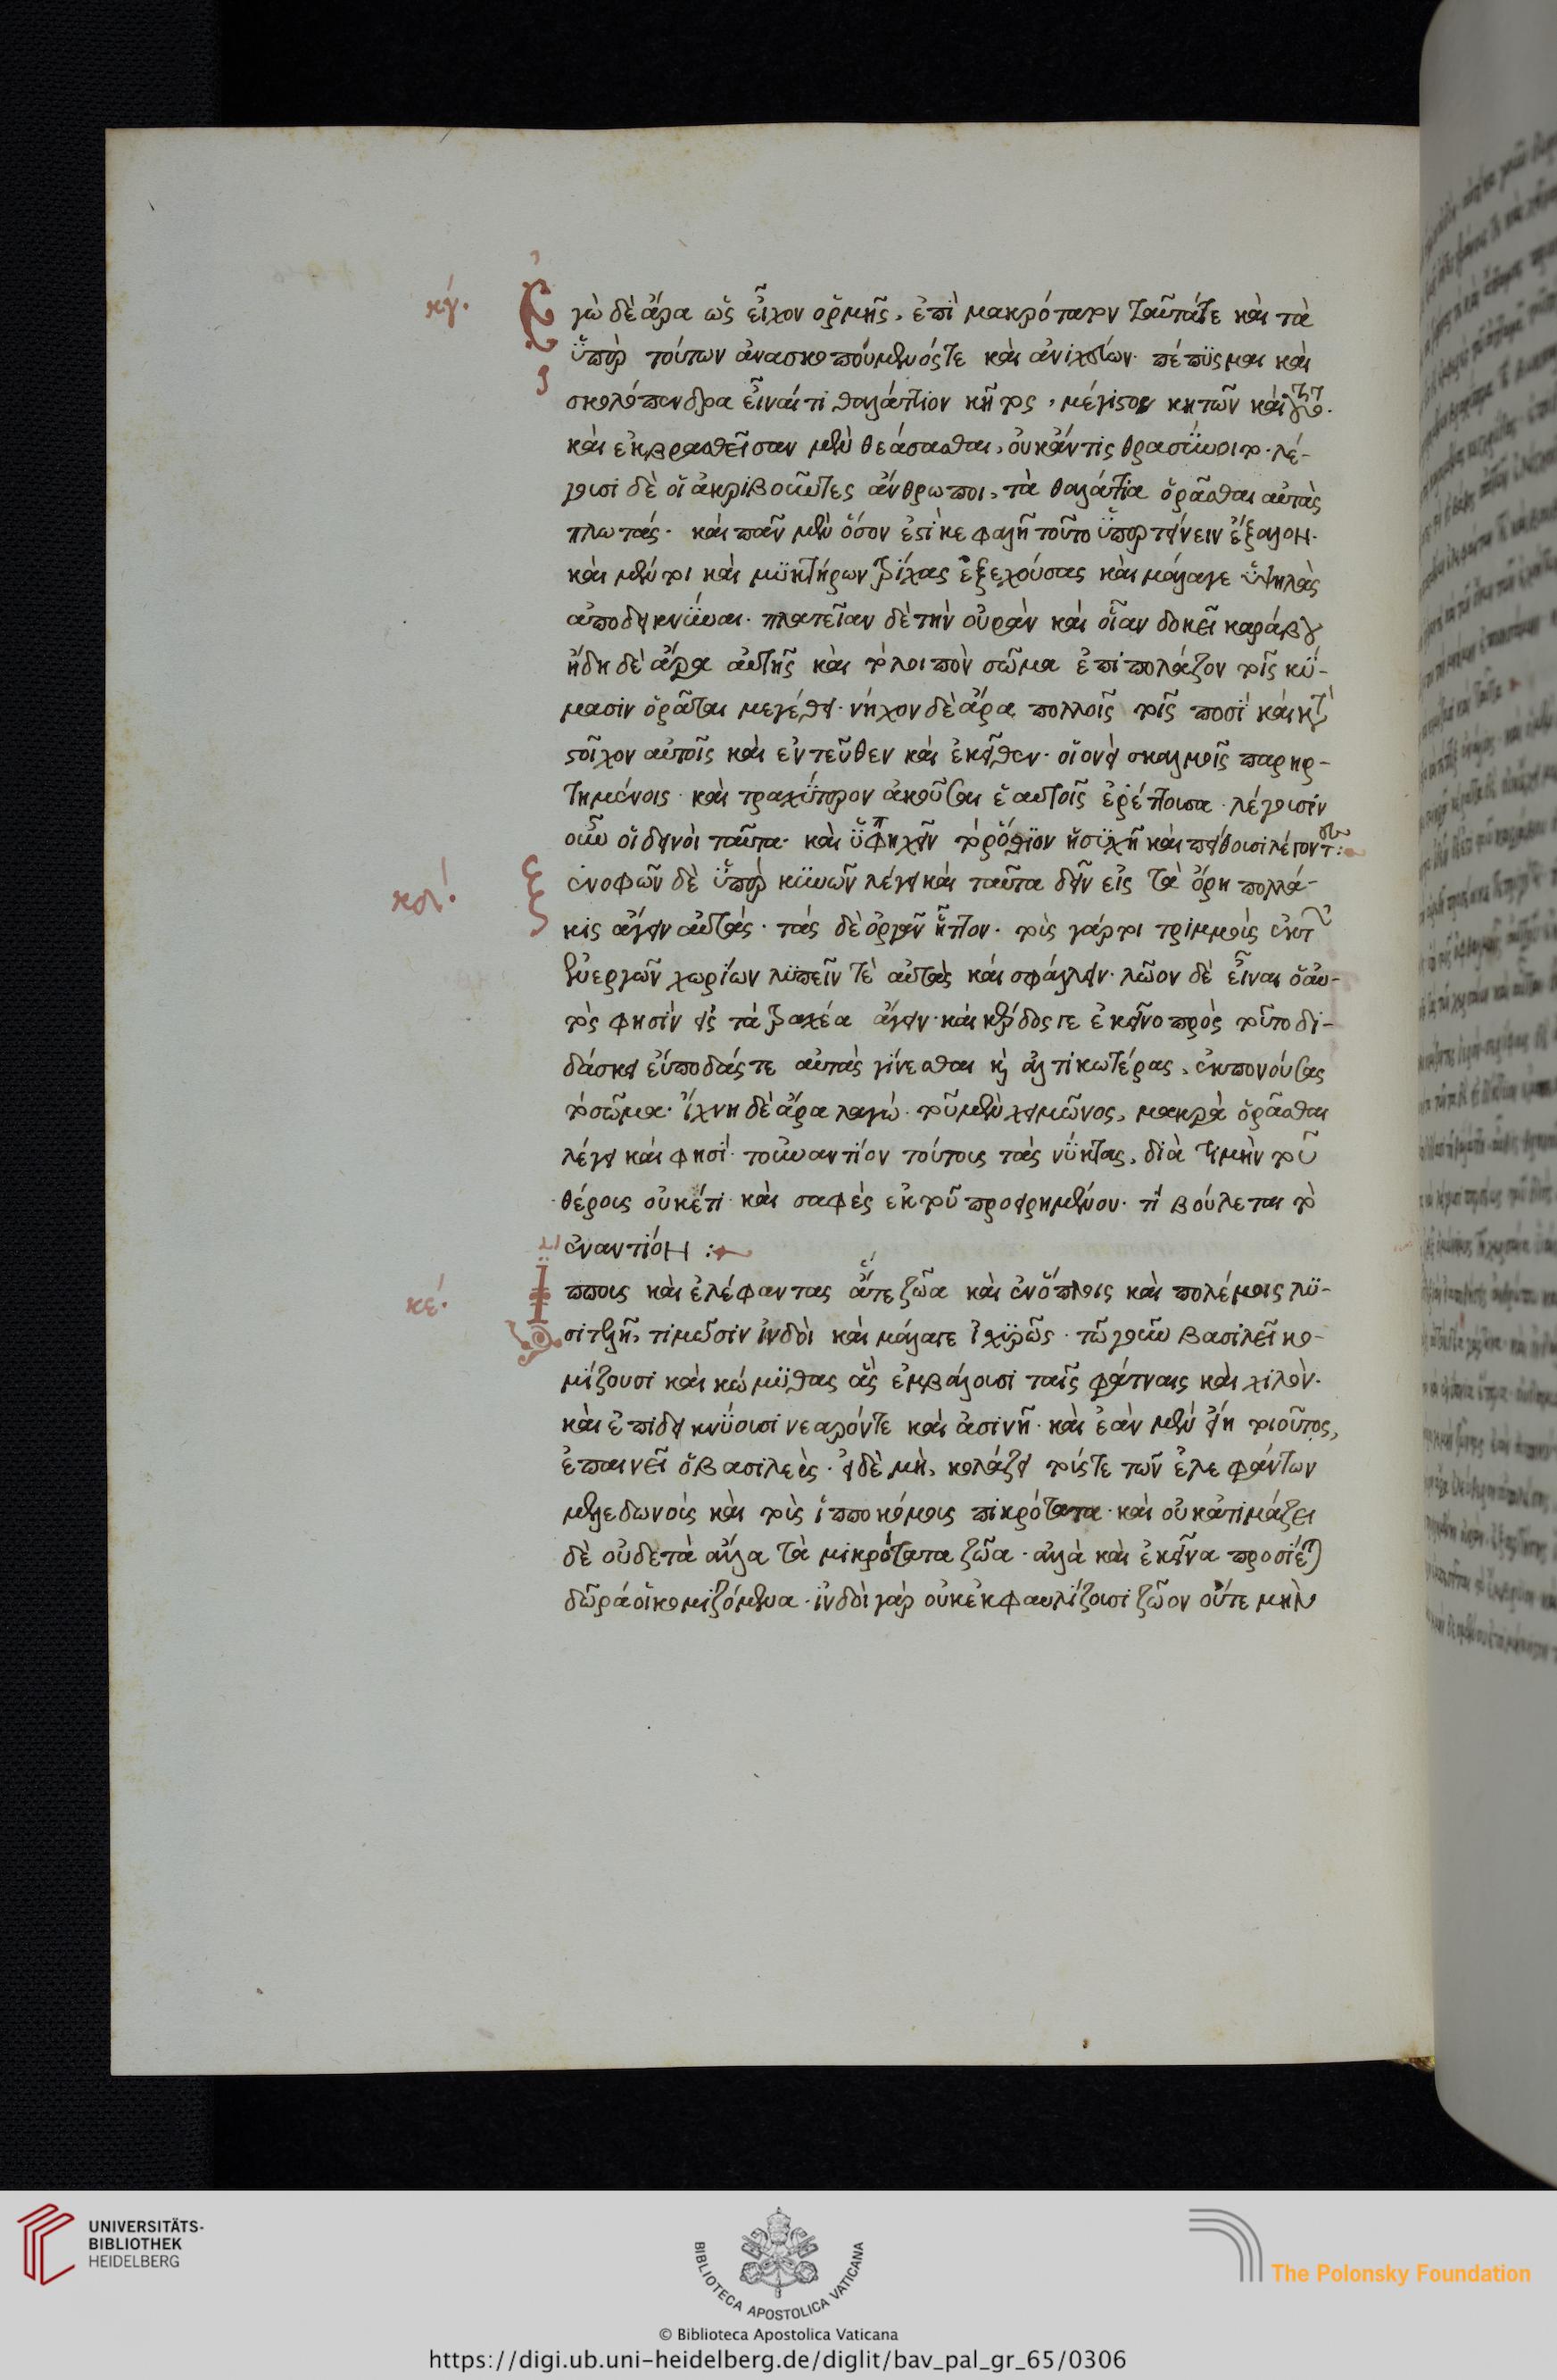 κγ΄. Ἐγὼ δὲ ἄρα ὡς εἶχον ὁρμῆς, ἐπὶ μακρότατον ταῦτά τε καὶ τὰ
ὑπὲρ τούτων ἀνασκοπούμενός τε καὶ ἀνιχνεύων. πέπυσμαι καὶ
σκολόπενδρα εἶναί τι θαλάττιον κῆτος, μέγιστον κητῶν καὶ
καὶ ἐκβρασθεῖσαν μὲν θεάσασθαι, οὐκ ἄν τις θρασύνοιτο. λέ-
γουσι δὲ οἱ ἀκριβοῦντες ἄνθρωποι, τὰ θαλάττια ὁρᾶσθαι αὐτὰς
πλωτάς. καὶ πᾶν μὲν ὅσον ἐστὶ κεφαλῆ τοῦτο ὑπερτείνειν ἔξαλον.
καὶ μέντοι καὶ μυκτήρων τρίχας ἐξεχούσας καὶ μάλαγε ὑψηλὰς
ἀποδείκνυναι. πλατεῖαν δὲ τὴν οὐρὰν καὶ οἵαν δοκεῖ καράβου
ἤδη δὲ ἄρα αὐτῆς καὶ τὸ λοιπὸν σῶμα ἐπιπολάζον τοῖς κύ-
μασιν ὁρᾶται μεγέθει. νήχον δὲ ἄρα πολλοῖς τοῖς ποσὶ καὶ κατὰ
στοῖχον αὐτοῖς καὶ ἐντεῦθεν καὶ ἐκεῖθεν. οἱονεὶ σκαλμοῖς παρηρ-
τημένοις. καὶ τραχύτερον ἀκοῦσαι ἑαυτοῖς ἐρέττουσα. λέγουσιν
οὖν οἱ δεινοὶ ταῦτα. καὶ ὑπηχεῖν τὸ ῥόθιον ἡσυχῆ καὶ πείθουσι λέγοντες:
κδ΄. Ξενοφῶν δὲ ὑπὲρ κυνῶν λέγει καὶ ταῦτα δεῖν εἰς τὰ ὄρη πολλά-
κις ἄγειν αὐτάς. τὰς δὲ ὀργὰν ἧττον. τοὺς γάρ τοι τριμμοὺς ἐκ τῶν
ἐνεργῶν χωρίων λυπεῖν τὲ αὐτὰς καὶ σφάλλειν. λῶον δὲ εἶναι ὁ αὐ-
τός φησὶν εἰς τὰ τραχέα ἄγειν. καὶ κέρδος γε ἐκεῖνο πρὸς τοῦτο δι-
δάσκει εὔποδάς τε αὐτὰς γίνεσθαι καὶ ἁλτικωτέρας, ἐκπονούσας
τὸ σῶμα. ἴχνη δὲ ἄρα λαγώ. τοῦ μὲν χειμῶνος, μακρὰ ὁρᾶσθαι
λέγει καὶ φησὶ. τοὐναντίον τούτοις τὰς νύκτας, διὰ τιμὴν τοῦ
θέρους οὐκέτι. καὶ σαφὲς ἐκ τοῦ προειρημένου. τί βούλεται τὸ
ἐναντίον :
κε΄. Ἵππους καὶ ἐλέφαντας ἅτε ζῶα καὶ ἐν ὅπλοις καὶ πολέμοις λυ-
σιτελῆ, τιμῶσιν ἰνδοὶ καὶ μάλαγε ἰσχυρῶς. τῶ γοῦν βασιλεῖ κο-
μίζουσι καὶ κώμυθας ἃς ἐμβάλουσι ταῖς φάτναις καὶ χιλὸν.
καὶ ἐπιδεικνύουσι νεαρόν τε καὶ ἀσινῆ. καὶ ἐὰν μὲν εἴη τοιοῦτος,
ἐπαινεῖ ὁ βασιλεὺς. εἰ δὲ μὴ, κολάζει τούς τε τῶν ἐλεφάντων
μελεδωνοὺς καὶ τοὺς ἱπποκόμους πικρότατα. καὶ οὐκ ἀτιμάζει
δὲ οὐδὲ τὰ ἄλλα τὰ μικρότατα ζῶα. ἀλλὰ καὶ ἐκεῖνα προσίεται
δῶρά οἱ κομιζόμενα. ἰνδοὶ γάρ οὐκ ἐκφαυλίζουσι ζῶον οὔτε μὴν
UNIVERSITÄTS-
BIBLIOTHEK
HEIDELBERG
BIBLIOTECA APOSTOLICA VATICANA
The Polonsky Foundation
© Biblioteca Apostolica Vaticana
https://digi.ub.uni-heidelberg.de/diglit/bav_pal_gr_65/0306